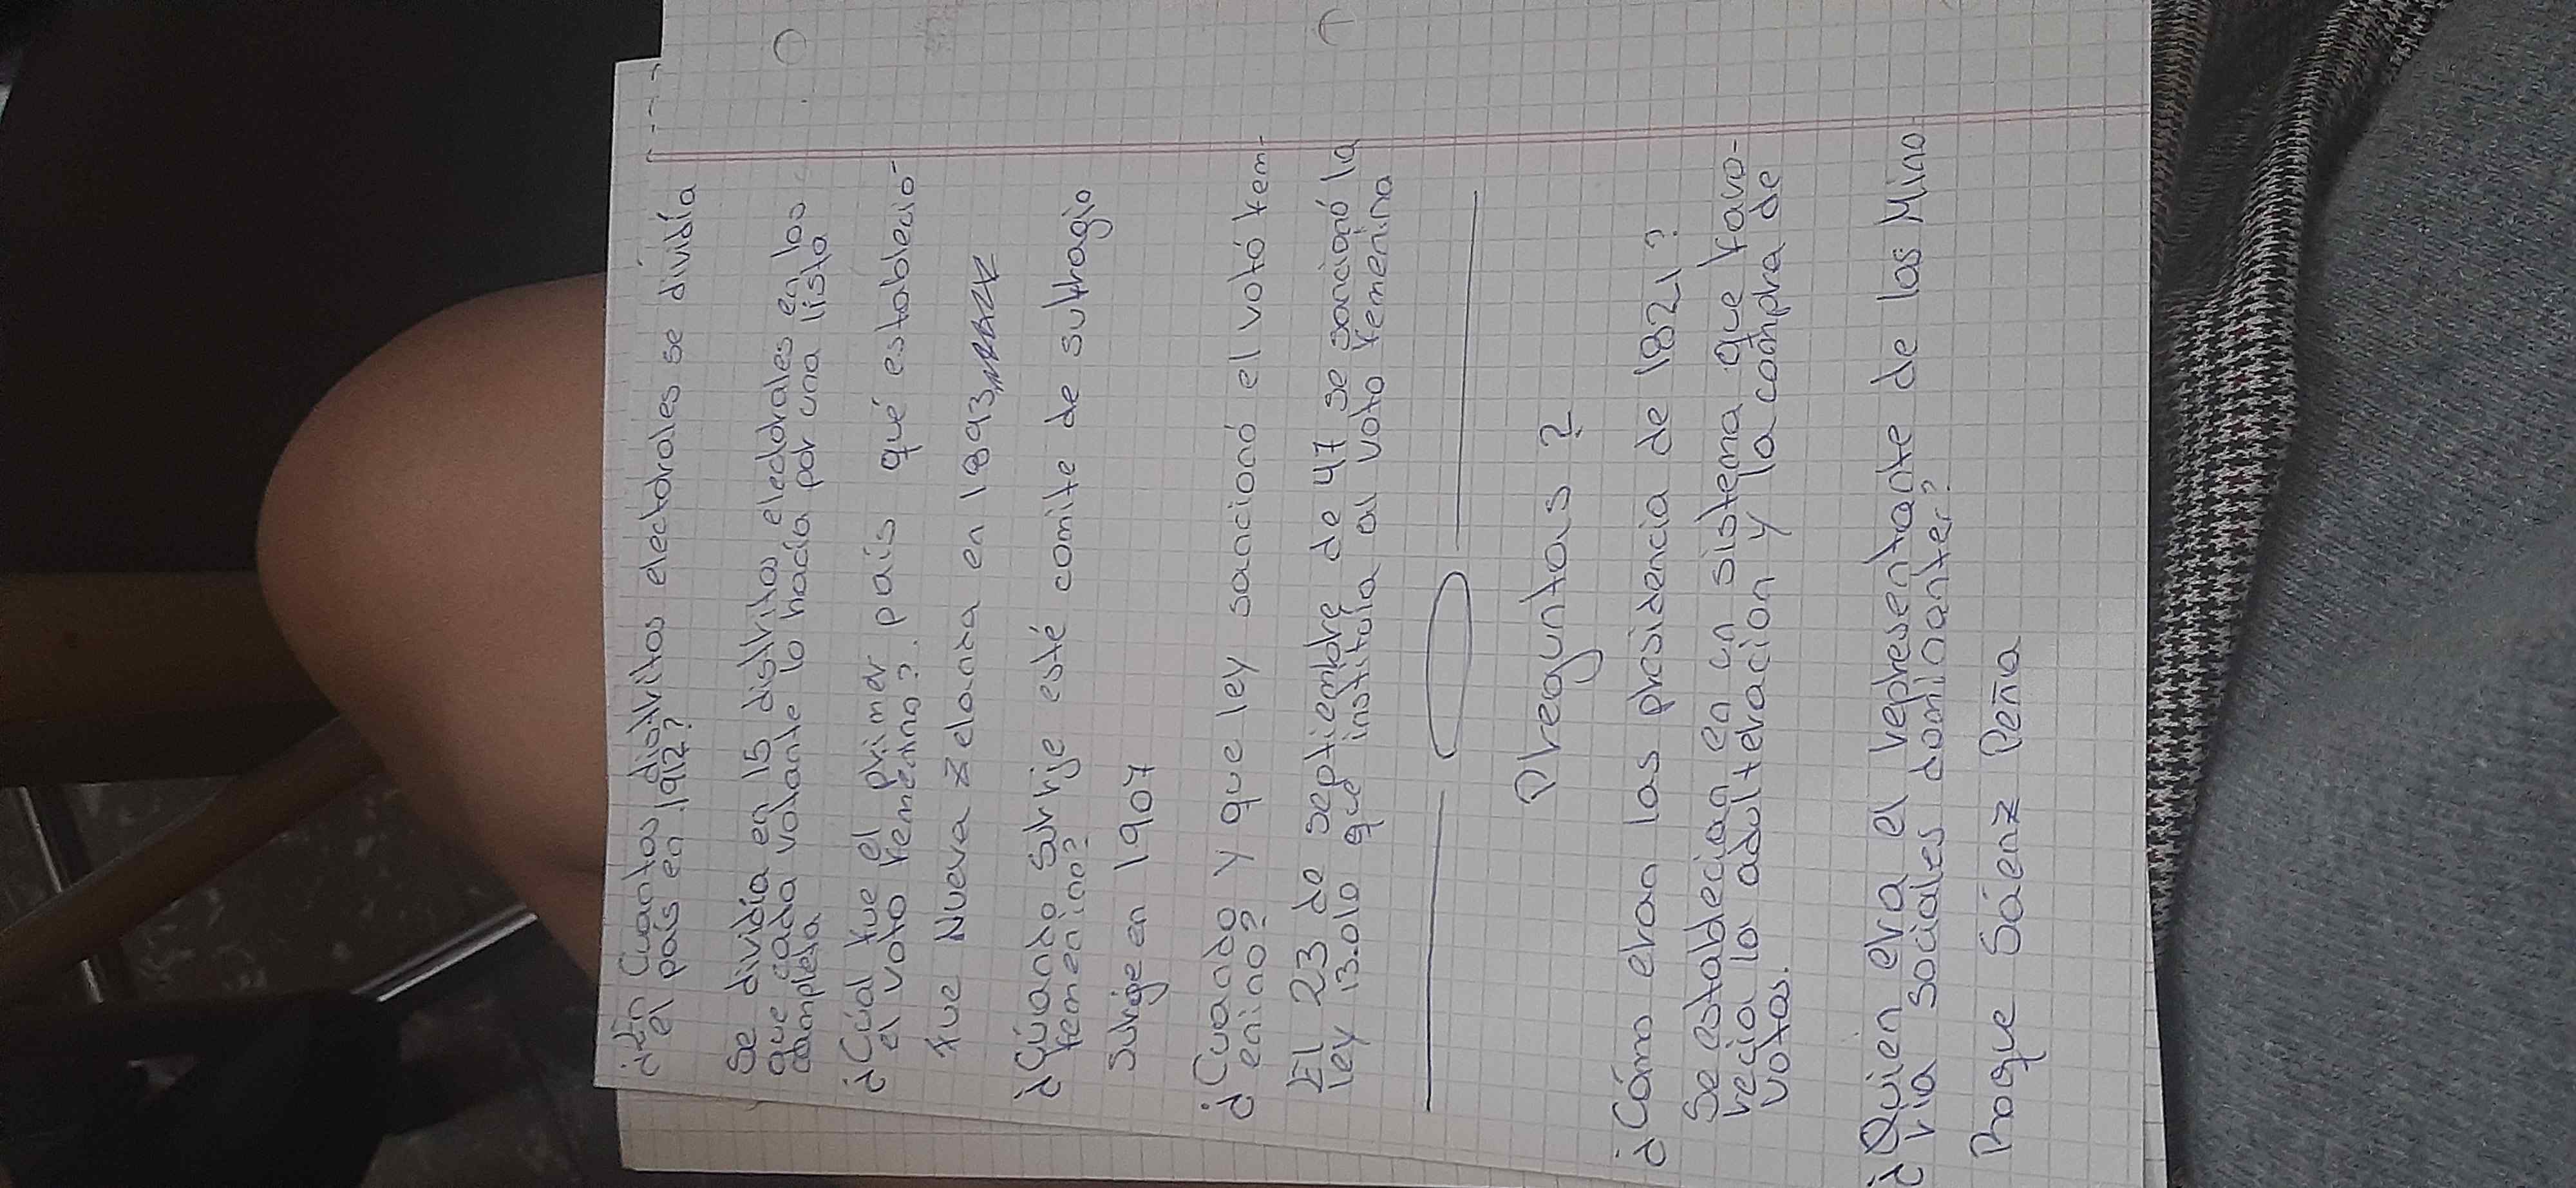 ¿En Cuantos distritos electorales se dividía
el país en 1912?
Se dividía en 15 distritos electorales en los
que cada votante lo hacía por una lista
completa
¿Cúal fue el primer país qué estableció
el voto femenino?.
Fue Nueva Zelanza en 1893
¿Cúando surije esté comite de sufragio
femenino?
Surige en 1907
¿Cuando y que ley sancionó el votó fem-
enino?
El 23 de septiembre de 47 se sancionó la
ley 13.010 que instituía al voto femenino
Preguntas ?
¿Cómo eran las presidencia de 1821?
Se establecian en un sistema que favo-
recia la adulteracion y la compra de
votos.
¿Quien era el representante de las Mino-
ria sociales dominanter?
Roque Sáenz Peña